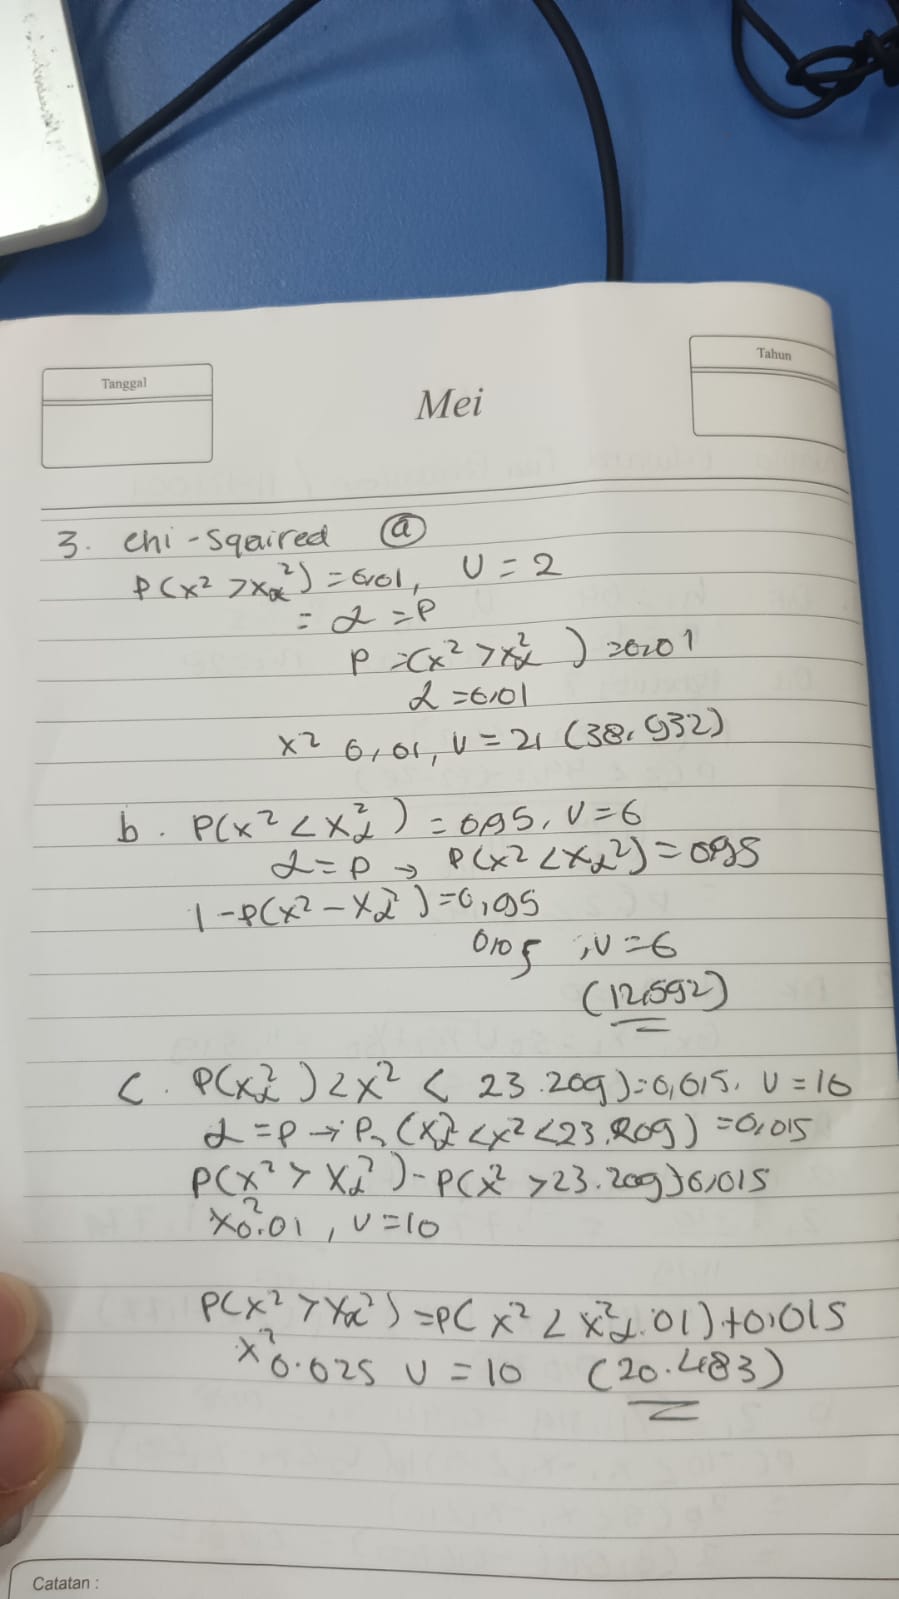 Tanggal
Mei
Tahun
3. chi-sqaired (a)
P(x² > xα²) = 0,01, U = 2
= α = P
P = (x² > xα²) = 0,01
α = 0,01
x² 0,01, v = 21 (38.932)
b. P(x² < xα²) = 0,95, v = 6
α = P → P(x² < xα²) = 0,95
1 - P(x² - xα²) = 0,95
0,05, v = 6
(12,592)
c. P(xα²) < x² < 23.209) = 0,015. v = 10
α = P → P, (xα² < x² < 23.209) = 0,015
P(x² > xα²) - P(x² > 23.209) 0,015
x²0.01, v = 10
P(x² > xα²) = P(x² < x²α.01) + 0,015
x²0.025 v = 10 (20.483)
Catatan :